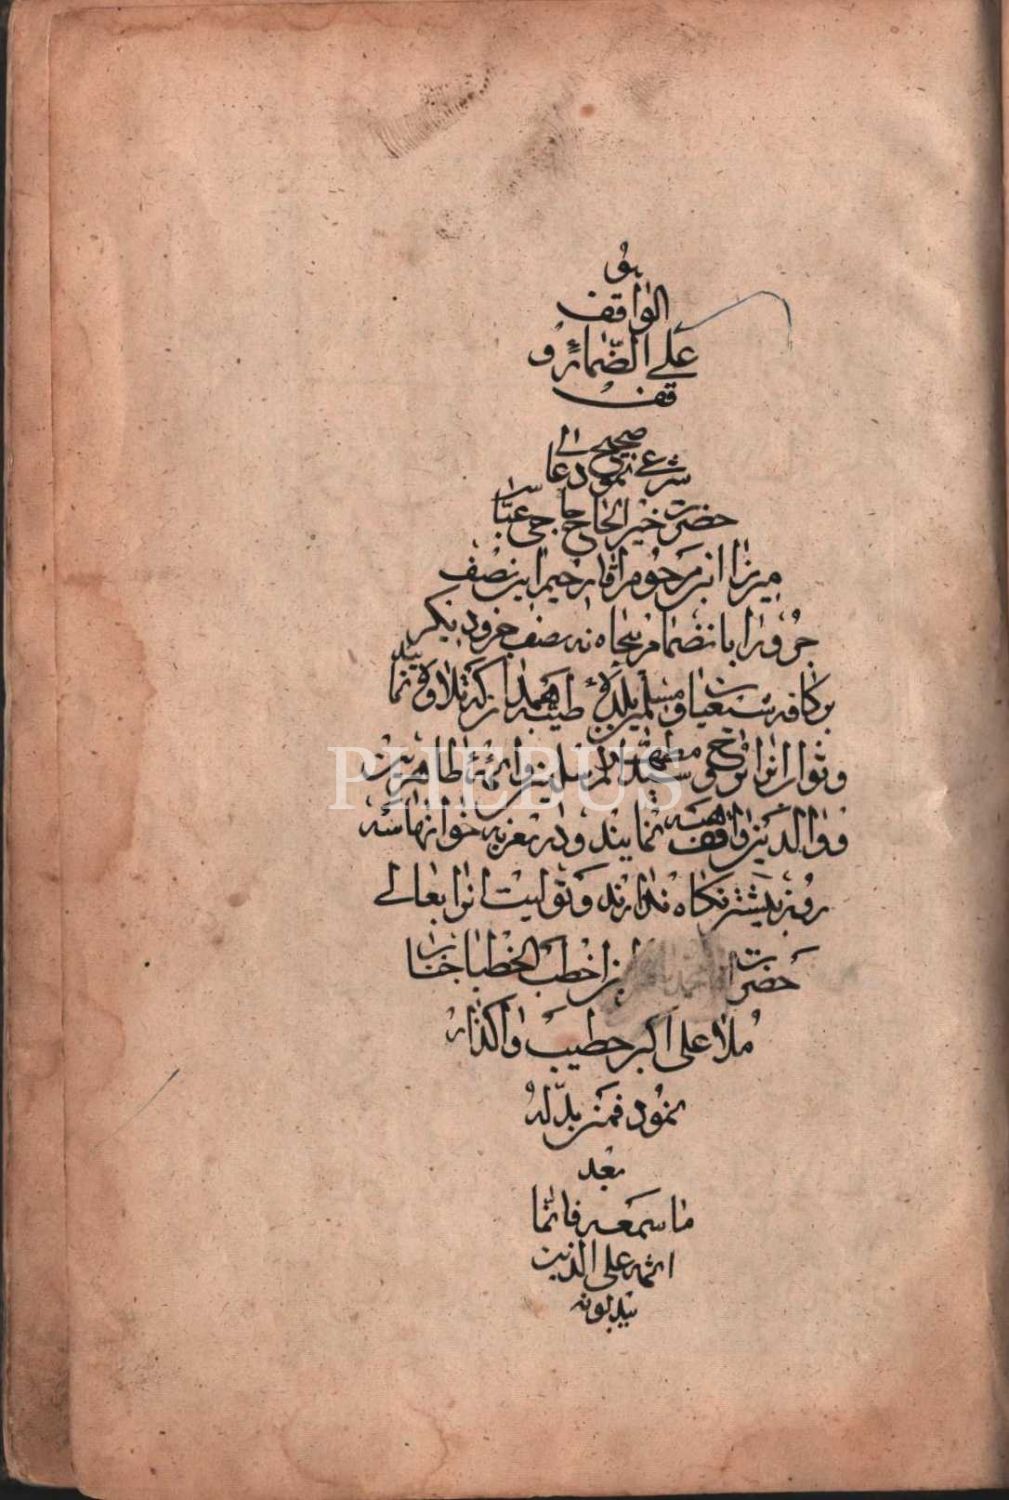 هو
الواقف
علی الضمائر و
قف
صحیح
شرعی نمود عالی
حضرت خیر الحاج حاجی عباس
میرزا ابن مرحوم اقا رحیم این نصف
جزو را بانضمام پنجاه نه نصف جزو دیگر
بر کافه شیعیان و مسلمین بلده طیبه همدان که تلاوة نمایند
و ثواب انرا بروح سید المرسلین و ائمه طاهرین
و والدین واقف نمایند و در تعزیه خوانیها سه
روز بیشتر نگاه ندارند و تولیت انرا بعالی
حضرت اخطب الخطبا جناب
ملا علی اکبر خطیب واگذار
نمود فمن بدله
بعد
ما سمعه فانما
اثمه علی الذین
یبدلونه
PHEBUS